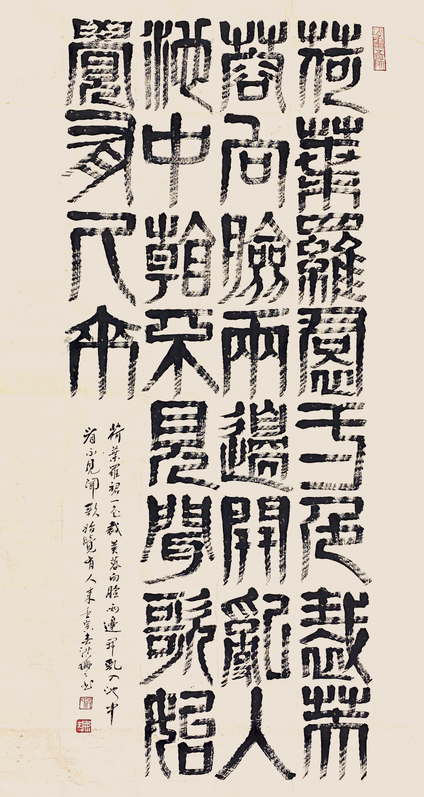 荷葉羅裙一色裁芙
蓉向臉兩邊開亂入
池中看不見聞歌始
覺有人來
荷葉羅裙一色裁芙蓉向臉兩邊開亂入池中
看不見聞歌始覺有人來